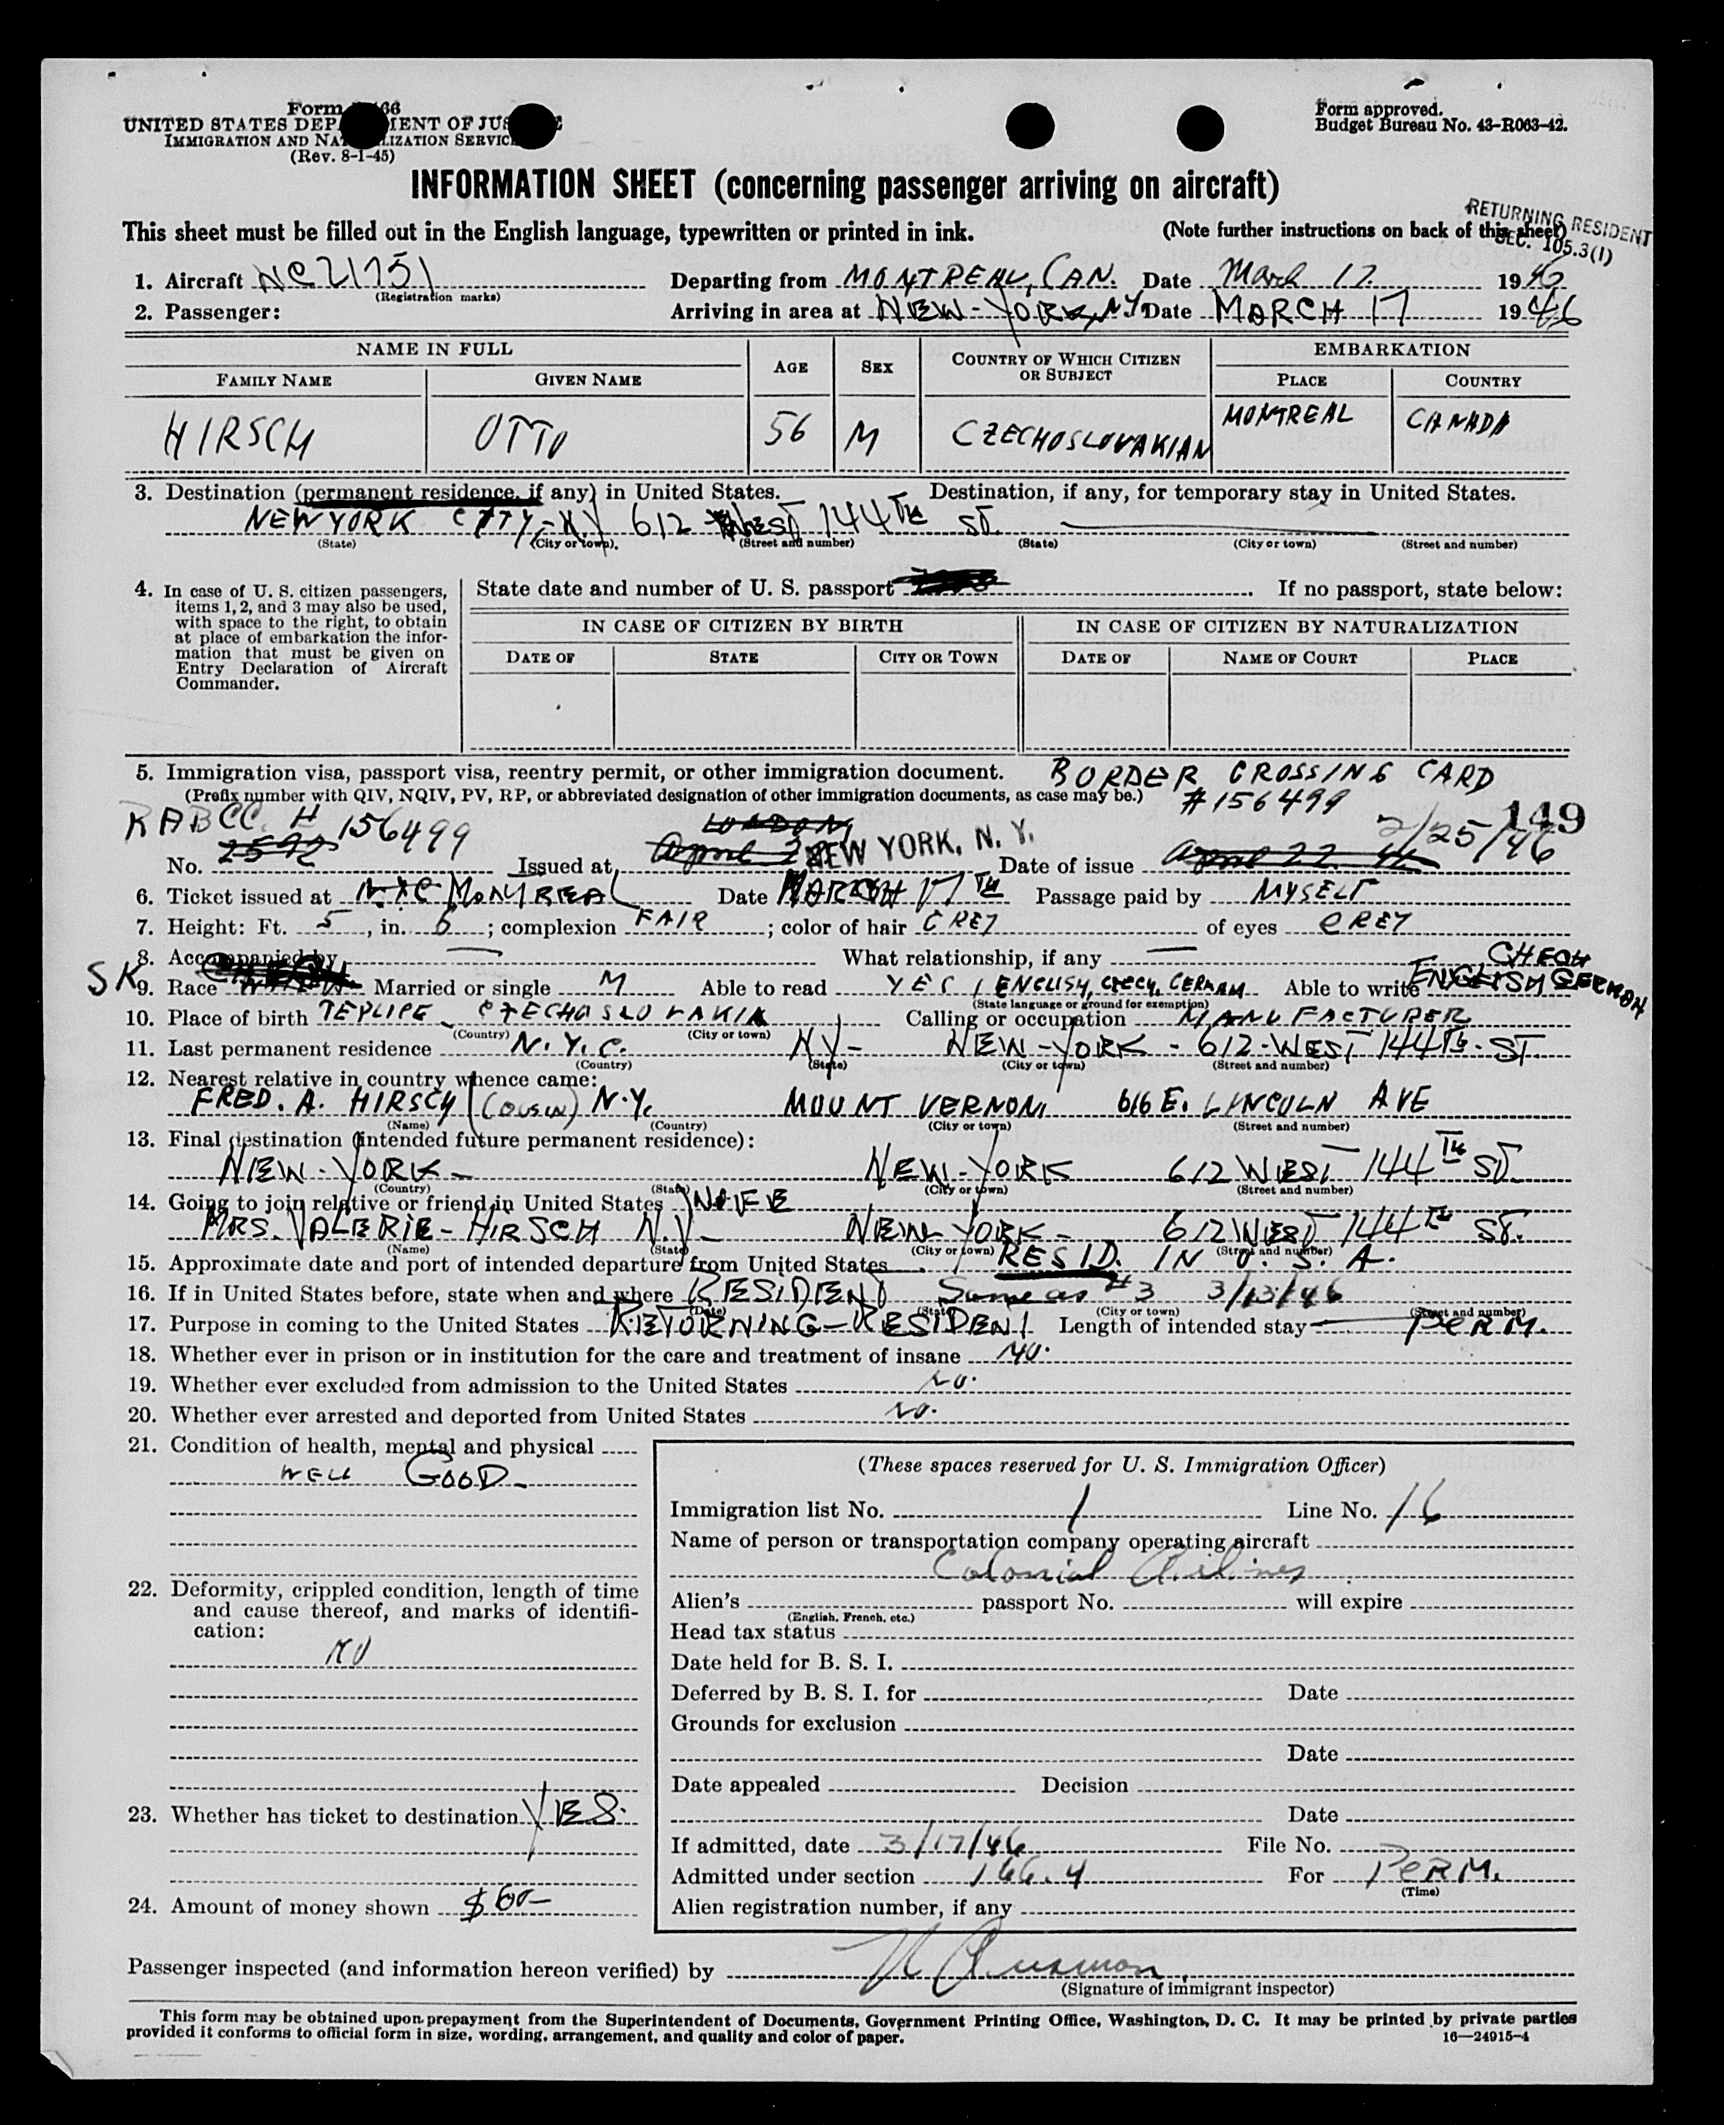 Form 66
UNITED STATES DEP IENT OF JUS
IMMIGRATION AND NA LIZATION SERVIC
(Rev. 8-1-45)
Form approved.
Budget Bureau No. 43-R063-42.
INFORMATION SHEET (concerning passenger arriving on aircraft)
RETURNING RESIDENT
SEC. 105.3(1)
This sheet must be filled out in the English language, typewritten or printed in ink. (Note further instructions on back of this sheet)
1. Aircraft NC21751 Departing from MONTREAL, CAN. Date March 17. 1946
(Registration marks)
2. Passenger: Arriving in area at NEW-YORK, NY. Date MARCH 17 1946
NAME IN FULL AGE SEX COUNTRY OF WHICH CITIZEN OR SUBJECT EMBARKATION
FAMILY NAME GIVEN NAME PLACE COUNTRY
HIRSCH OTTO 56 M CZECHOSLOVAKIAN MONTREAL CANADA
3. Destination (permanent residence, if any) in United States. Destination, if any, for temporary stay in United States.
NEW YORK CITY, N.Y 612 WEST 144TH ST.
(State) (City or town) (Street and number) (State) (City or town) (Street and number)
4. In case of U. S. citizen passengers, items 1, 2, and 3 may also be used, with space to the right, to obtain at place of embarkation the information that must be given on Entry Declaration of Aircraft Commander.
State date and number of U. S. passport If no passport, state below:
IN CASE OF CITIZEN BY BIRTH IN CASE OF CITIZEN BY NATURALIZATION
DATE OF STATE CITY OR TOWN DATE OF NAME OF COURT PLACE
5. Immigration visa, passport visa, reentry permit, or other immigration document. BORDER CROSSING CARD
(Prefix number with QIV, NQIV, PV, RP, or abbreviated designation of other immigration documents, as case may be.) #156499
149
RABCC. H 156499 LONDON 2/25/46
No. 2592 Issued at April 22 NEW YORK, N. Y. Date of issue April 22
6. Ticket issued at NYC MONTREAL Date MARCH 17TH Passage paid by MYSELF
7. Height: Ft. 5, in. 6; complexion FAIR; color of hair GREY of eyes GREY
8. Accompanied by What relationship, if any
SK CHECH
9. Race Married or single M Able to read YES, ENGLISH, CZECH, GERMAN Able to write ENGLISH GERMAN
(State language or ground for exemption)
10. Place of birth TEPLICE CZECHOSLOVAKIA Calling or occupation MANUFACTURER
(Country) (City or town)
11. Last permanent residence N.Y.C. NY- NEW-YORK - 612-WEST 144TH-ST.
(Country) (State) (City or town) (Street and number)
12. Nearest relative in country whence came:
FRED. A. HIRSCH (COUSIN) N.Y. MOUNT VERNON, 616 E. LINCOLN AVE
(Name) (Country) (City or town) (Street and number)
13. Final destination (intended future permanent residence):
NEW-YORK- NEW-YORK 612 WEST 144TH ST.
(Country) (State) (City or town) (Street and number)
14. Going to join relative or friend in United States WIFE
MRS. VALERIE-HIRSCH N.Y- NEW-YORK- 612 WEST 144TH ST.
(Name) (State) (City or town) (Street and number)
15. Approximate date and port of intended departure from United States RESID. IN U.S.A.
16. If in United States before, state when and where RESIDENT Same as #3 3/13/46
(Date) (State) (City or town) (Street and number)
17. Purpose in coming to the United States RETURNING-RESIDENT Length of intended stay PERM.
18. Whether ever in prison or in institution for the care and treatment of insane NO.
19. Whether ever excluded from admission to the United States NO.
20. Whether ever arrested and deported from United States NO.
21. Condition of health, mental and physical
WELL GOOD-
22. Deformity, crippled condition, length of time and cause thereof, and marks of identification:
NO
23. Whether has ticket to destination YES.
24. Amount of money shown $60-
(These spaces reserved for U. S. Immigration Officer)
Immigration list No. 1 Line No. 16
Name of person or transportation company operating aircraft
Colonial Airlines
Alien's passport No. will expire
(English, French, etc.)
Head tax status
Date held for B. S. I.
Deferred by B. S. I. for Date
Grounds for exclusion
Date
Date appealed Decision
Date
If admitted, date 3/17/46 File No.
Admitted under section 166.4 For PERM.
(Time)
Alien registration number, if any
Passenger inspected (and information hereon verified) by
(Signature of immigrant inspector)
This form may be obtained upon prepayment from the Superintendent of Documents, Government Printing Office, Washington, D. C. It may be printed by private parties
provided it conforms to official form in size, wording, arrangement, and quality and color of paper. 16—24915-4